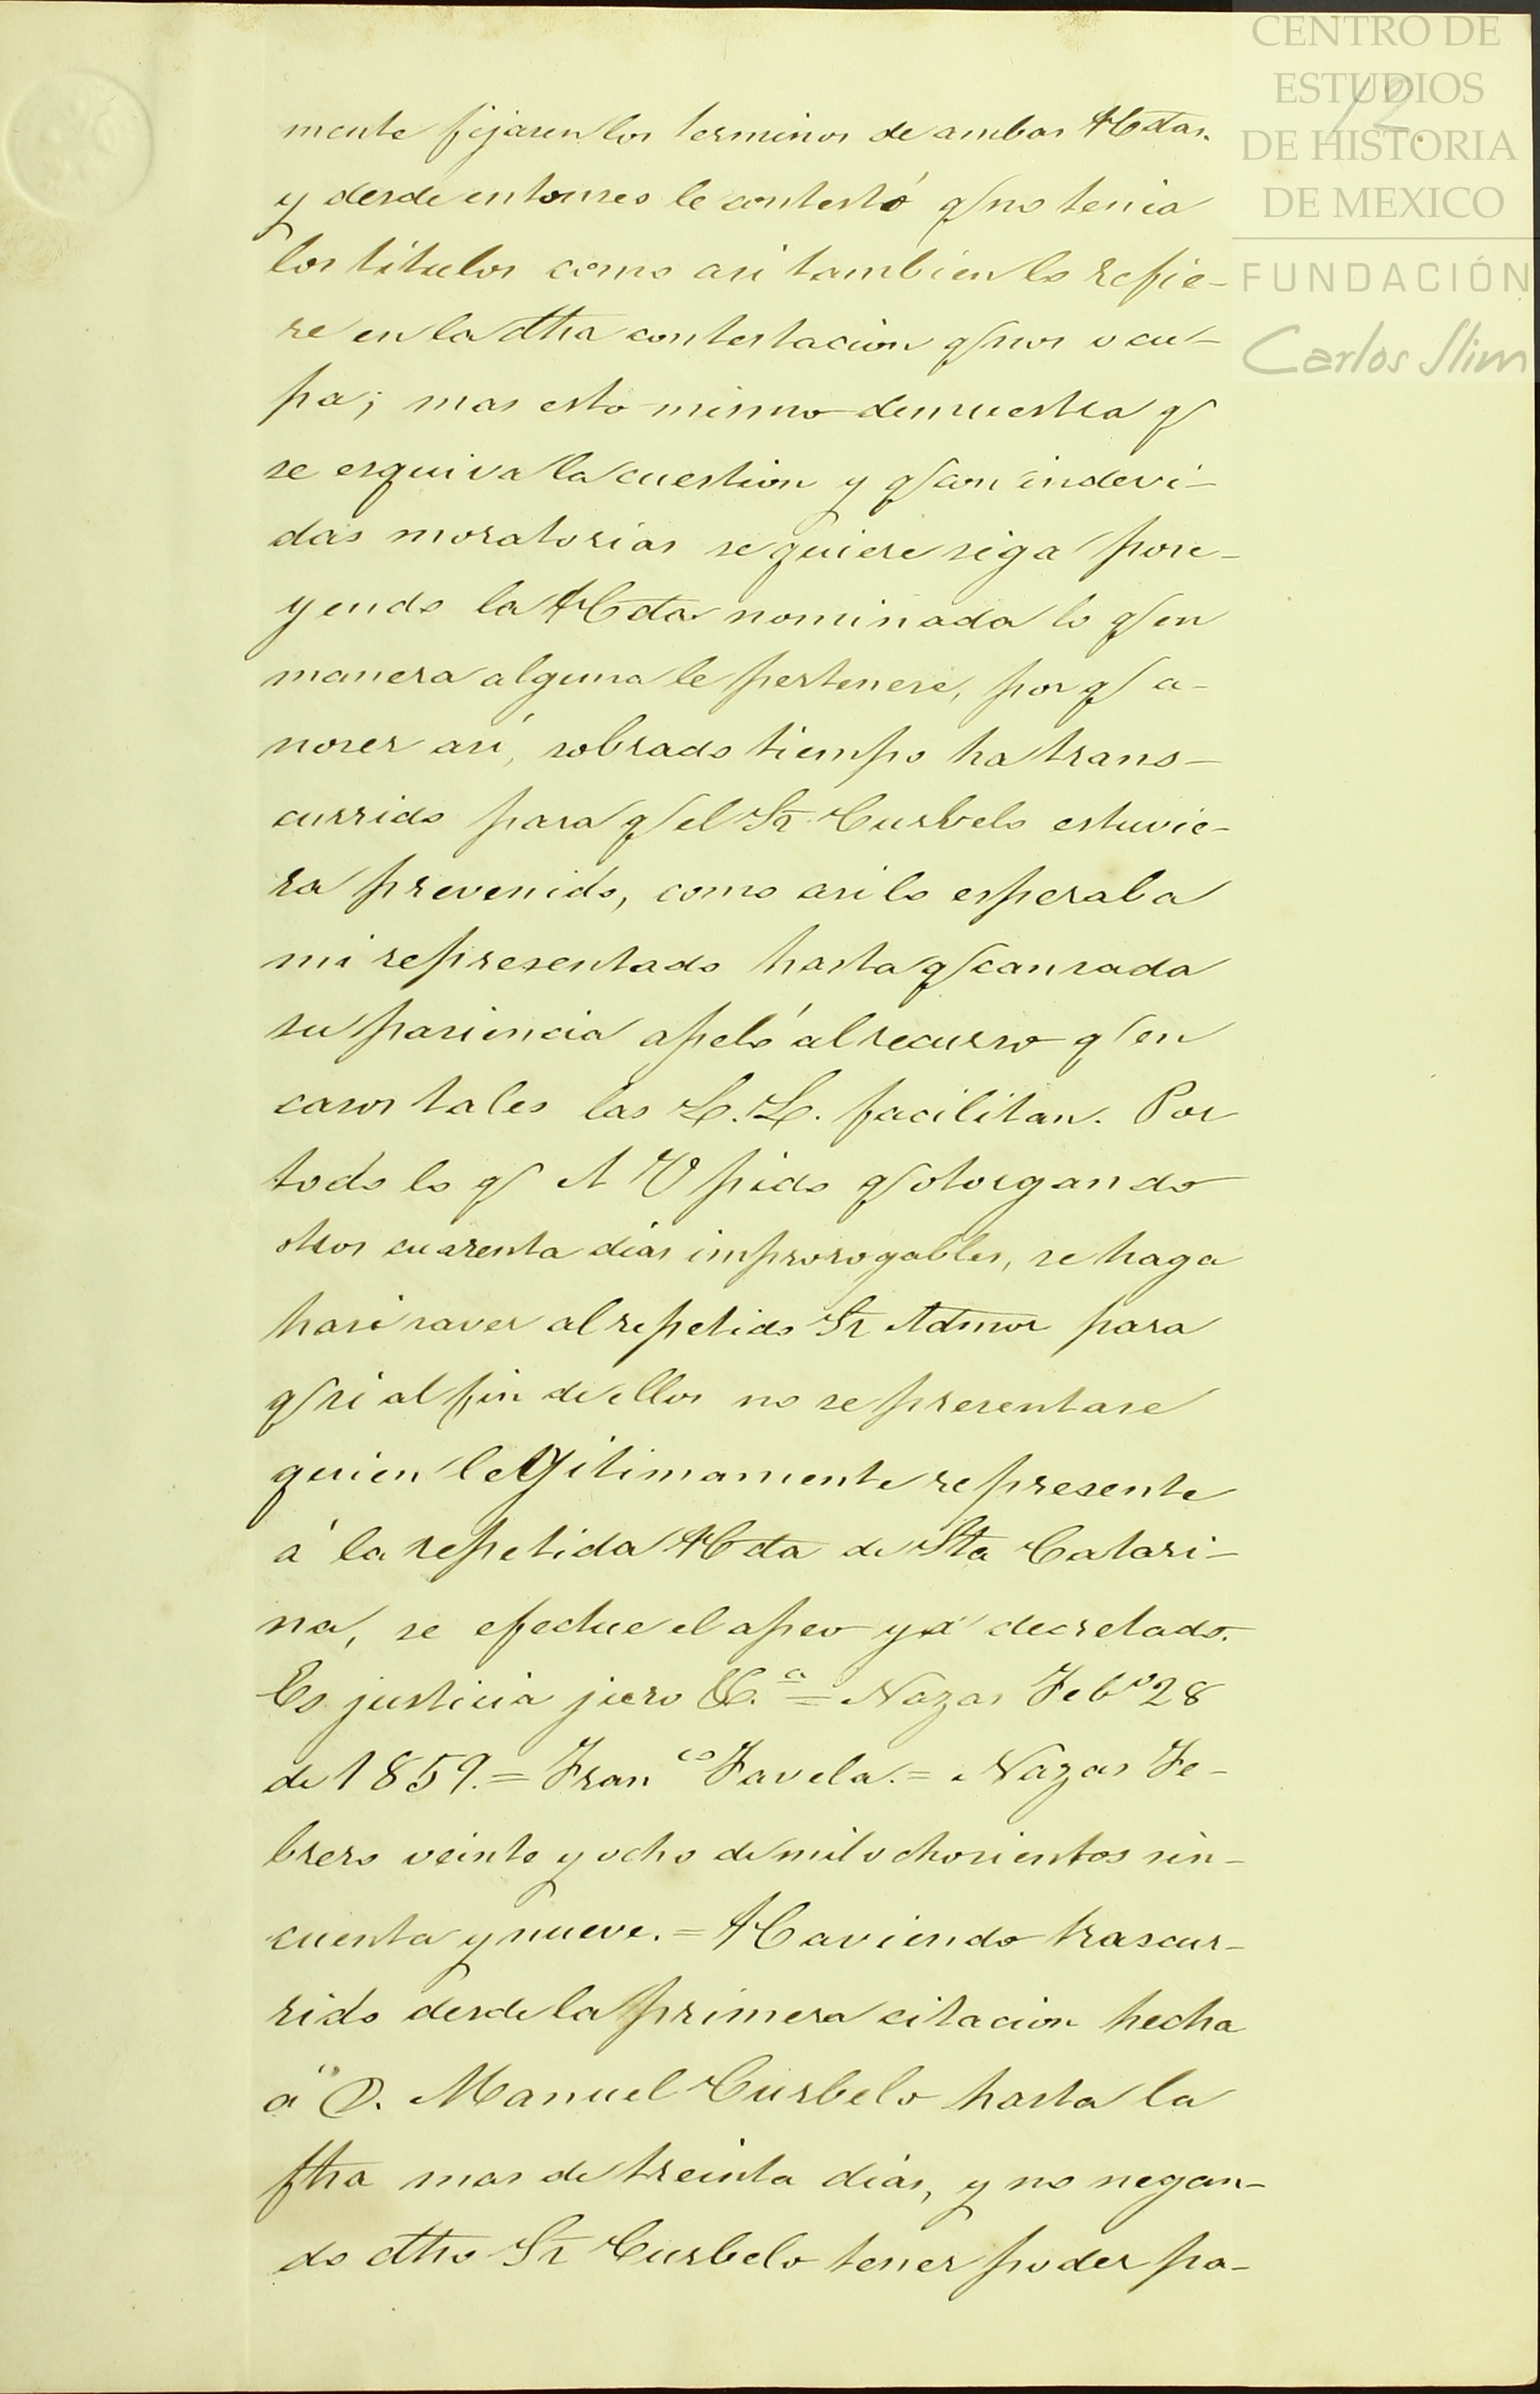 CENTRO DE
ESTUDIOS
DE HISTORIA
DE MEXICO
FUNDACIÓN
Carlos Slim
12.
mente fijasen los terminos de ambas Hdas.
y desde entonses le contestó q/ no tenia
los titulos como asi tambien lo refie-
re en la dha contestacion q/ nos ocu-
pa; mas esto mismo demuestra q/
se esquiva la cuestion y q/ con indevi-
das moratorias se quiere siga pose-
yendo la Hda nominada lo q/ en
manera alguna le pertenese, por q/ a-
noser asi, sobrado tiempo ha trans-
currido para q/ el Sr Curbelo estuvie-
ra prevenido, como asi lo esperaba
mi representado hasta q/ cansada
su pasiencia apeló al recurso q/ en
casos tales las L.L. facilitan. Por
todo lo q/ A V pido q/ otorgando
otros cuarenta dias improrogables, se haga
hasi saver al repetido Sr Admor para
q/ si al fin de ellos no se presentase
quien legitimamente represente
á la repetida Hda de Sta Catari-
na, se efectue el apeo ya decretado.
Es justicia juro &.ª = Nazas Febº 28
de 1859. = Franco Favela. = Nazas Fe-
brero veinte y ocho de mil ochosientos sin-
cuenta y nueve. = Haviendo trascur-
rido desde la primera citacion hecha
á D. Manuel Curbelo hasta la
fha mas de treinta dias, y no negan-
do dho Sr Curbelo tener poder pa-